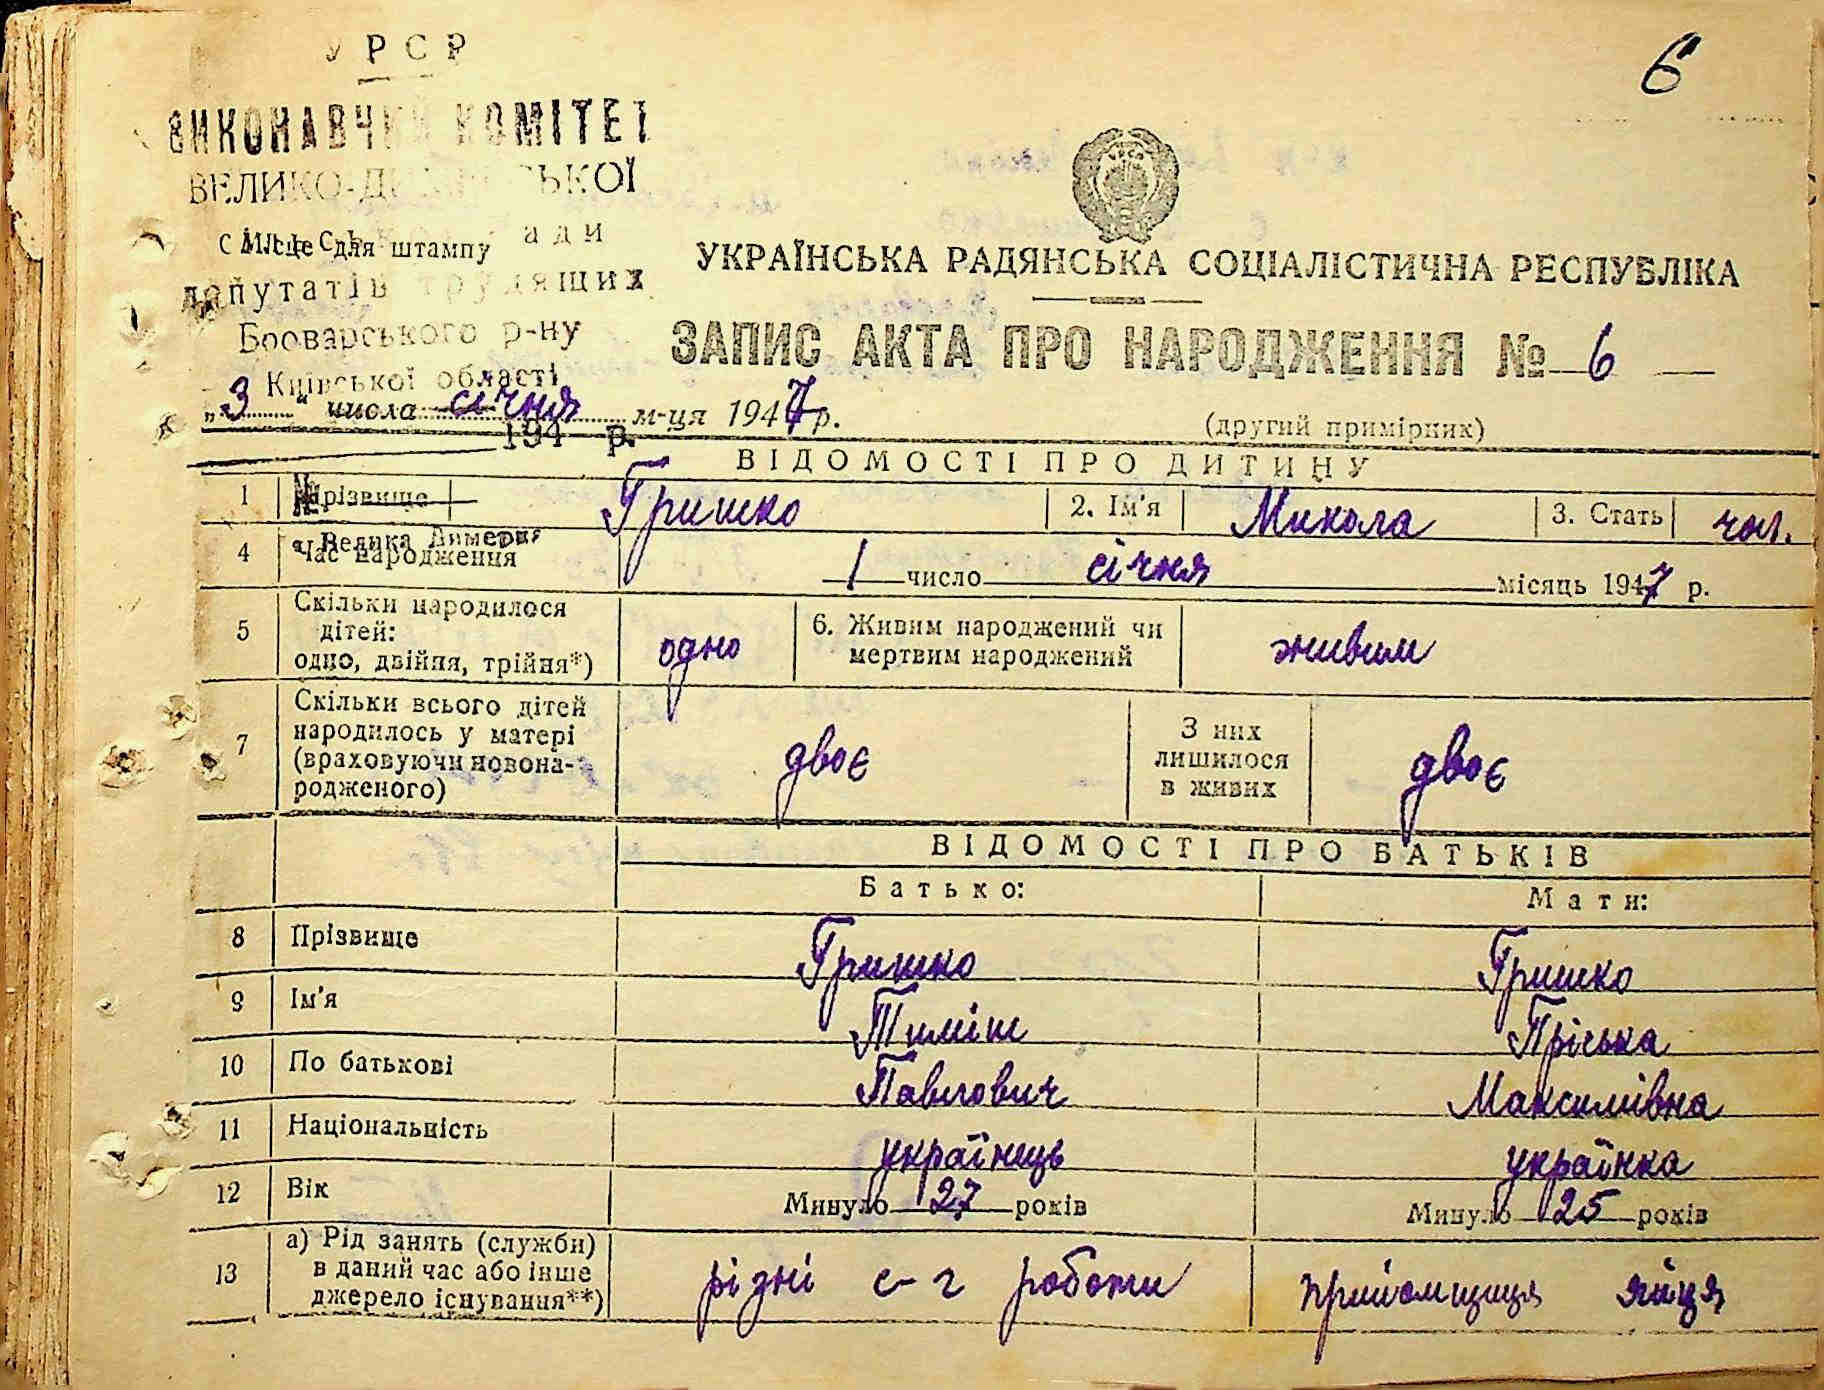 УРСР
6
ВИКОНАВЧИЙ КОМІТЕТ
ВЕЛИКО-ДИМЕРСЬКОЇ
Місце для штампу
ради
депутатів трудящих
Броварського р-ну
Київської області
УКРАЇНСЬКА РАДЯНСЬКА СОЦІАЛІСТИЧНА РЕСПУБЛІКА
ЗАПИС АКТА ПРО НАРОДЖЕННЯ № 6
„3“ числа січня м-ця 1947 р.
(другий примірник)
194 р.
ВІДОМОСТІ ПРО ДИТИНУ
1 Прізвище Гришко 2. Ім'я Микола 3. Стать чол.
№
с. Велика Димерка
4 Час народження 1 число січня місяць 1947 р.
5 Скільки народилося дітей: одно, двійня, трійня*) одно 6. Живим народжений чи мертвим народжений живим
7 Скільки всього дітей народилось у матері (враховуючи новона-родженого) двоє З них лишилося в живих двоє
ВІДОМОСТІ ПРО БАТЬКІВ
Батько: Мати:
8 Прізвище Гришко Гришко
9 Ім'я Тиміш Пріська
10 По батькові Павлович Максимівна
11 Національність українець українка
12 Вік Минуло 27 років Минуло 25 років
13 а) Рід занять (служби) в даний час або інше джерело існування**) різні с-г роботи прийомщиця яйця